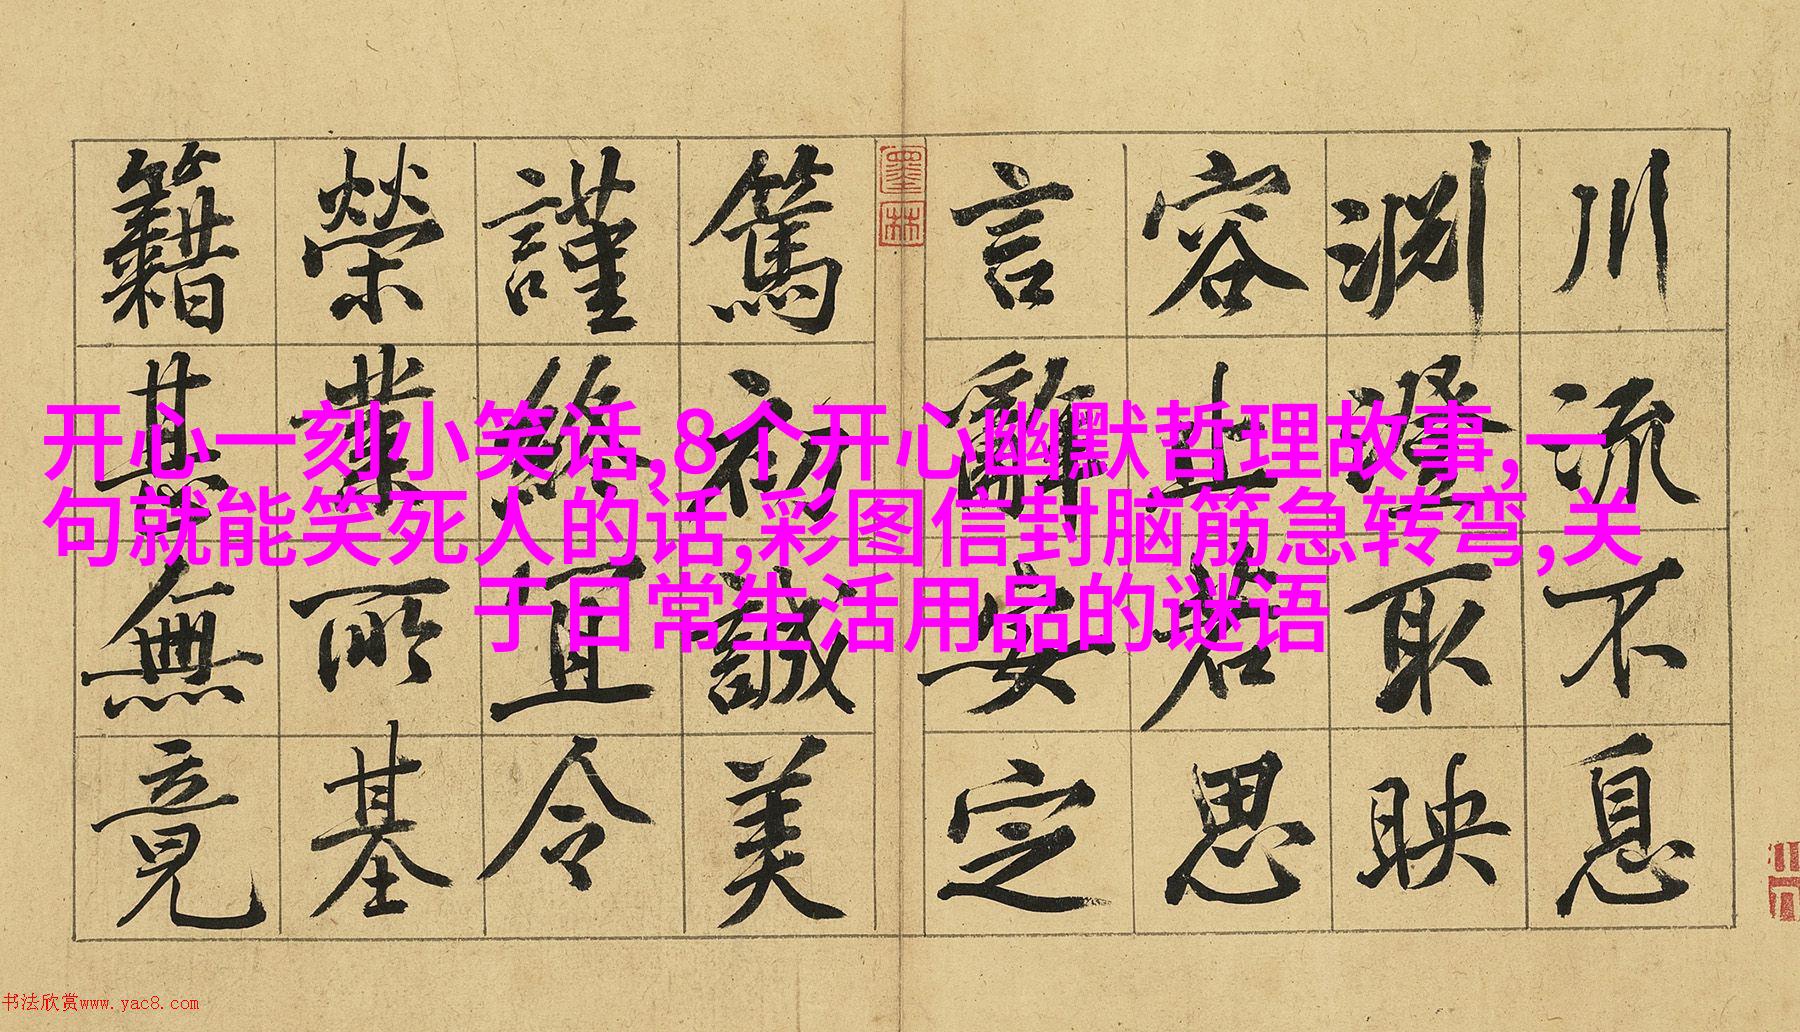 川流不息
淵澄取映
容止若思
言辭安定
篤初誠美
謹終宜令
榮業所基
籍甚無竟
墨林
开心一刻小笑话,8个开心幽默哲理故事,一
句就能笑死人的话,彩图信封脑筋急转弯,关
于日常生活用品的谜语
书法欣赏www.yac8.com